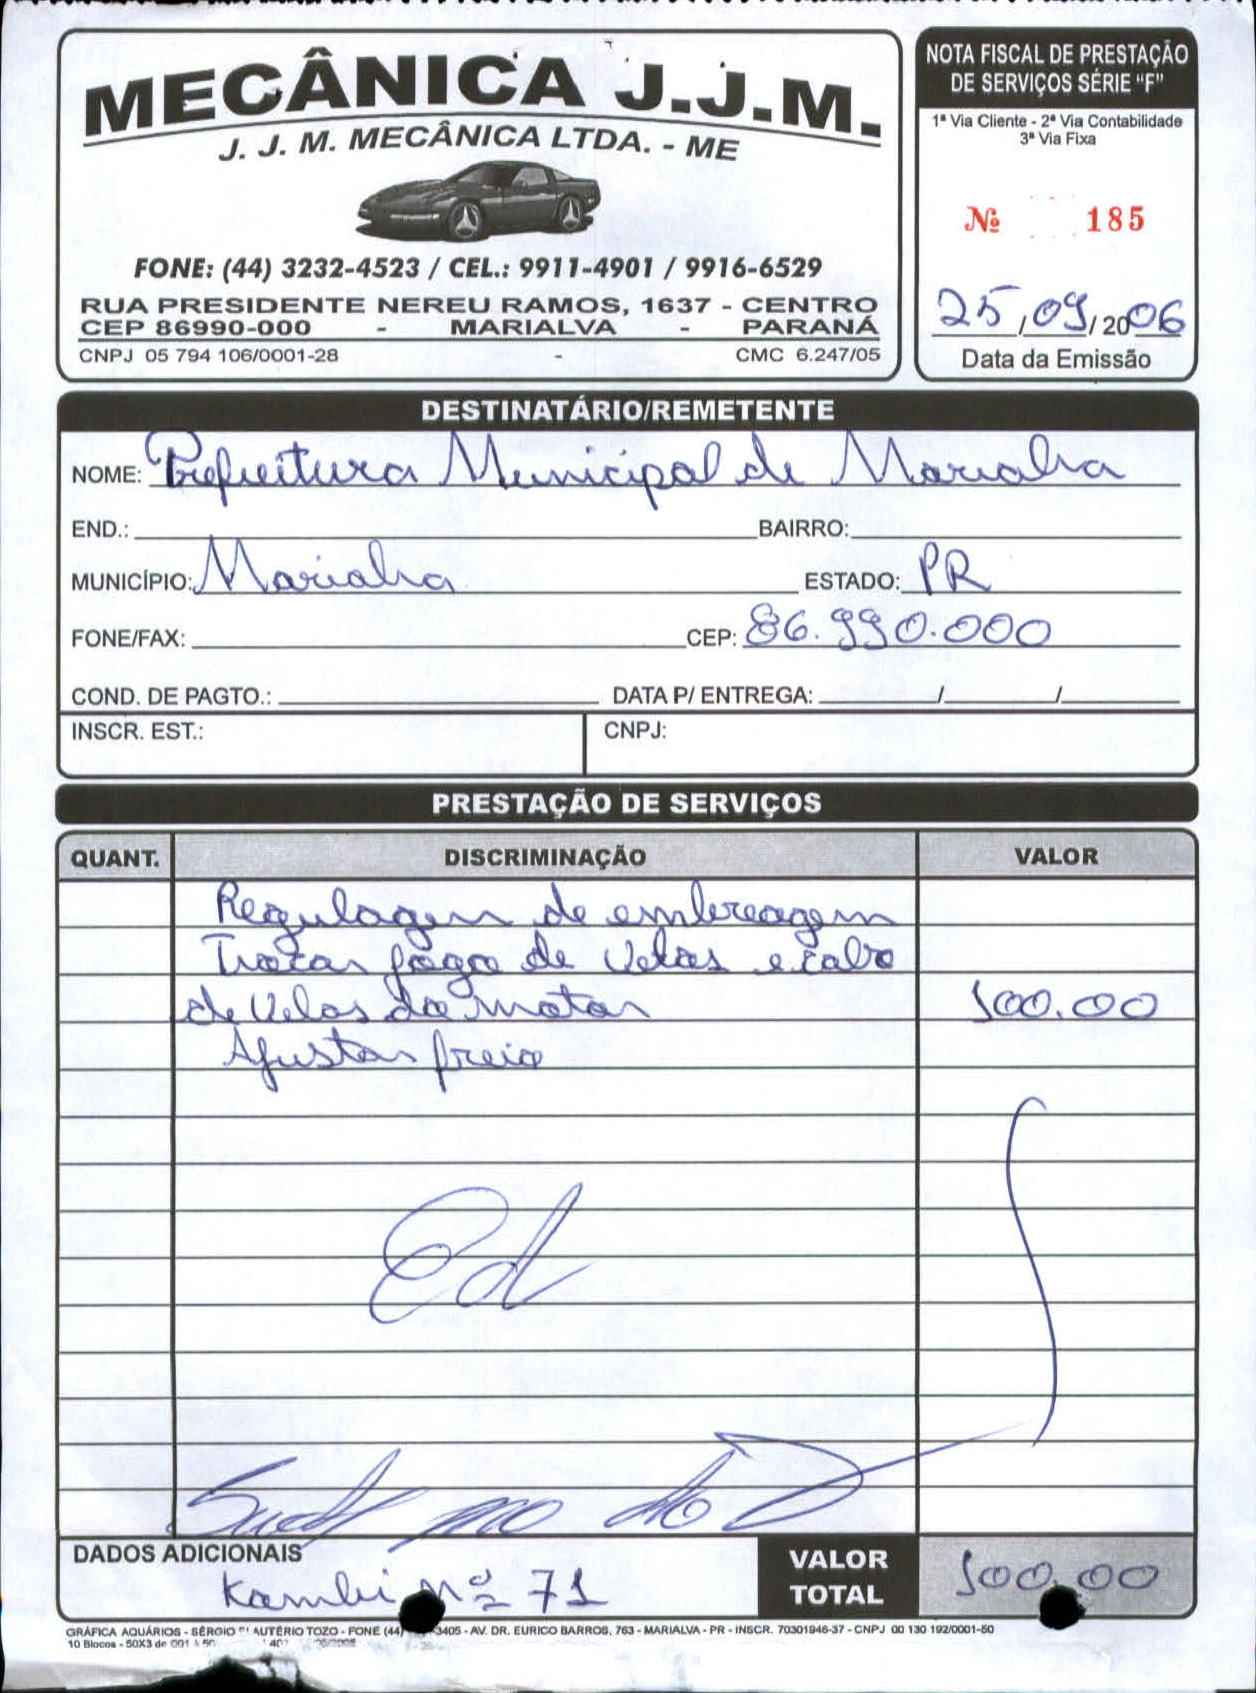 MECÂNICA J.J.M.
J. J. M. MECÂNICA LTDA. - ME
FONE: (44) 3232-4523 / CEL.: 9911-4901 / 9916-6529
RUA PRESIDENTE NEREU RAMOS, 1637 - CENTRO
CEP 86990-000 - MARIALVA - PARANÁ
CNPJ 05 794 106/0001-28 - CMC 6.247/05
NOTA FISCAL DE PRESTAÇÃO
DE SERVIÇOS SÉRIE “F”
1ª Via Cliente - 2ª Via Contabilidade
3ª Via Fixa
Nº 185
25/09/2006
Data da Emissão
DESTINATÁRIO/REMETENTE
NOME: Prefeitura Municipal de Marialva
END.: BAIRRO:
MUNICÍPIO: Marialva ESTADO: PR
FONE/FAX: CEP: 86.990.000
COND. DE PAGTO.: DATA P/ ENTREGA: / /
INSCR. EST.: CNPJ:
PRESTAÇÃO DE SERVIÇOS
QUANT. DISCRIMINAÇÃO VALOR
Regulagem de embreagem
Trocar jogo de Velas e cabo
de Velas do motor 100.00
Ajustar freio
Ed
DADOS ADICIONAIS
Kombi Nº 71
VALOR
TOTAL 100.00
GRÁFICA AQUÁRIOS - SÉRGIO AUTÉRIO TOZO - FONE (44) 3405 - AV. DR. EURICO BARROS, 763 - MARIALVA - PR - INSCR. 70301946-37 - CNPJ 00 130 192/0001-50
10 Blocos - 50X3 de 001